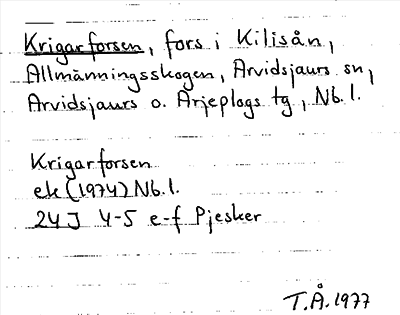 Krigarforsen, fors i Kilisån,
Allmänningsskogen, Arvidsjaurs sn,
Arvidsjaurs o. Arjeplogs tg, Nb. l.
Krigarforsen
ek (1974) Nb. l.
24J 4-5 e-f Pjesker
T.Å. 1977